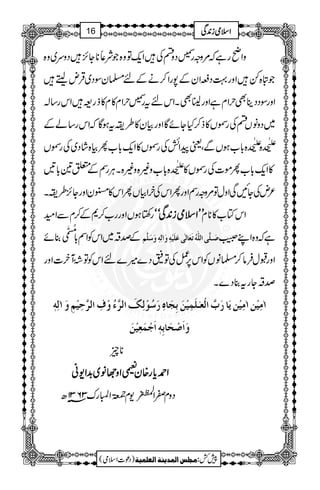 اسلامی زندگی
16
واضح رہے کہ مروجہ رسمیں دو قسم کی ہیں ایک تو وہ جو شرعاً ناجائز ہیں دوسری وہ
جو تباہ کن ہیں اور بہت دفعہ ان کے پورا کرنے کے لئے مسلمان سودی قرض لیتے ہیں
اور سود دینا بھی حرام ہے اور لینا بھی۔ اس لئے یہ رسمیں حرام کام کا ذریعہ ہیں اس رسالہ
میں دونوں قسم کی رسموں کا ذکر کیا جائے گا اور بیان کا طریقہ یہ ہوگا کہ اس رسالے کے
علیحدہ علیحدہ باب ہوں گے، یعنی پیدائش کی رسموں کا ایک باب پھر بیاہ شادی کی رسموں
کا ایک باب پھر موت کی رسموں کا علیحدہ باب وغیرہ وغیرہ۔ ہر رسم کے متعلق تین باتیں
عرض کی جائیں گی اول تو مروجہ رسم اور پھر اس کی خرابیاں پھر اس کا مسنون اور جائز طریقہ۔
اس کتاب کا نام ’’اسلامی زندگی‘‘ رکھتا ہوں اور رب کریم کے کرم سے امید
ہے کہ وہ اپنے حبیب صَلَّی اللہُ تَعَالٰی عَلَیْہِ وَاٰلِہٖ وَسَلَّم کے صدقہ میں اس کو اسم بامُسمّٰی بنائے
اور قبول فرما کر مسلمانوں کو اس پر عمل کی توفیق دے میرے لئے اس کو توشۂ آخرت اور
صدقہ جاریہ بنا دے۔
اٰمِیْن اٰمِیْن یَا رَبَّ الْعٰلَمِیْنَ بِجَاہِ رَسُوْلِکَ الرَّءُوْفِ الرَّحِیْمِ وَاٰلِہٖ
وَاَصْحَابِہٖ اَجْمَعِیْنَ
ناچیز
احمد یار خان نعیمی اوجھانوی بدایونی
دوم صفر المظفر یوم جمعۃ المبارک ۱۳۶۳ھ
پیش کش: مجلس المدینة العلمیة (دعوت اسلامی)